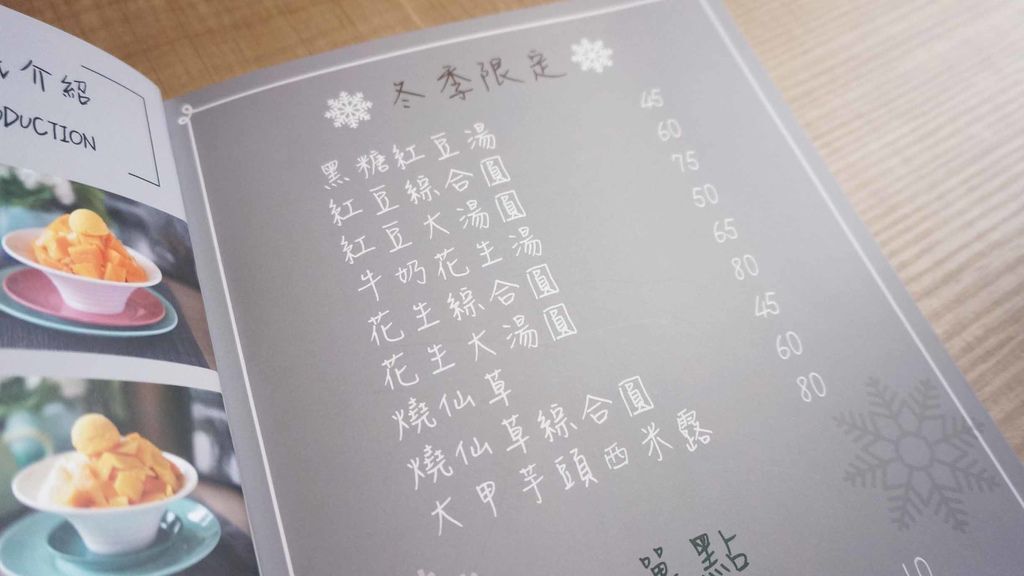 介紹
ODUCTION
冬季限定
黑糖紅豆湯 45
紅豆綜合圓 60
紅豆大湯圓 75
牛奶花生湯 50
花生綜合圓 65
花生大湯圓 80
燒仙草 45
燒仙草綜合圓 60
大甲芋頭西米露 80
單點
10